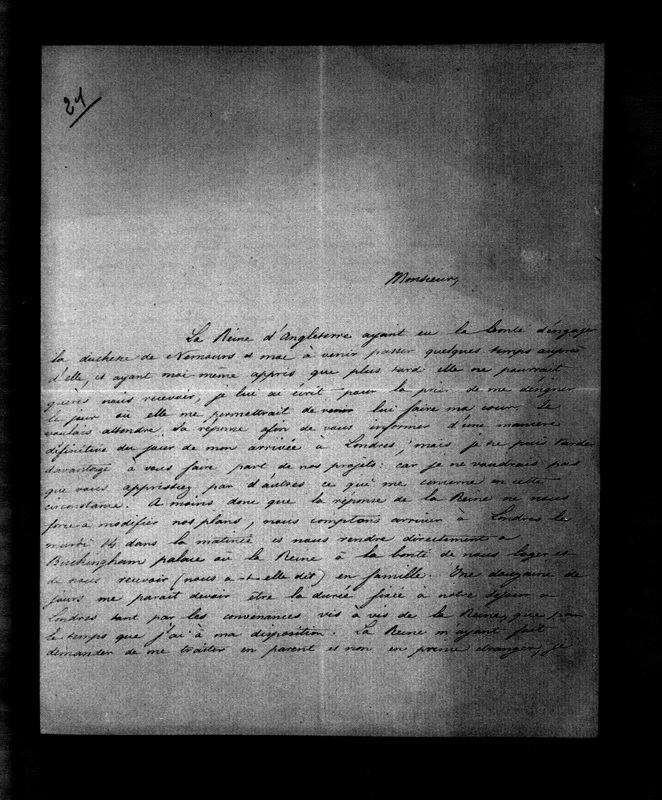 21
Monsieur,
La Reine d'Angleterre ayant eu la bonté d'engager
la duchesse de Nemours et moi à venir passer quelques temps auprès
d'elle, et ayant moi même appris que plus tard elle ne pourrait
guères nous recevoir, je lui ai écrit pour la prier de me désigner
le jour où elle me permettrait de venir lui faire ma cour. Je
voulais attendre sa réponse afin de vous informer d'une manière
définitive du jour de mon arrivée à Londres; mais je ne puis tarder
davantage à vous faire part de nos projets: car je ne voudrais pas
que vous apprissiez par d'autres ce qui me concerne en cette
circonstance. A moins donc que la réponse de la Reine ne nous
force à modifier nos plans, nous comptons arriver à Londres le
mardi 14 dans la matinée et nous rendre directement à
Buckingham palace où la Reine à la bonté de nous loger et
de nous recevoir (nous a-t-elle dit) en famille. Une douzaine de
jours me parait devoir être la durée fixée à notre séjour à
Londres tant par les convenances vis à vis de la Reine, que par
le temps que j'ai à ma disposition. La Reine m'ayant fait
demander de me traiter en parent et non en prince étranger, je